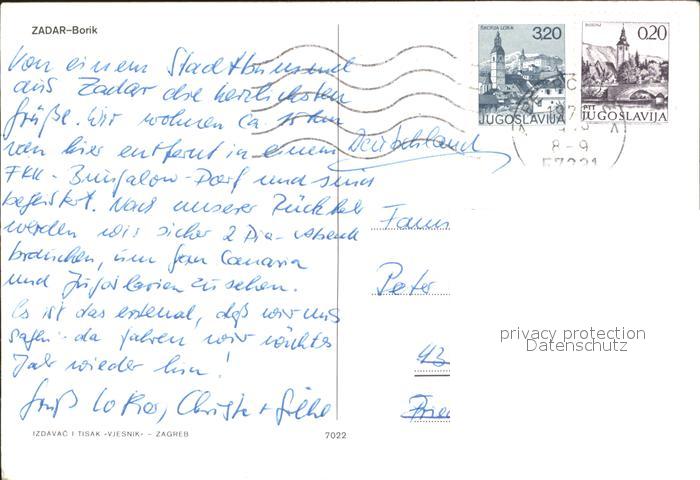 ZADAR–Borik
Von einem Stadtbummel
aus Zadar die herzlichsten
Grüße. Wir wohnen ca. 15 km
von hier entfernt in einem
FKK-Bungalow-Dorf und sind
begeistert. Nach unserer Rückkehr
werden wir sicher 2 Dia-Abende
brauchen, um Gran Canaria
und Jugoslavien zu sehen.
Es ist das erstemal, daß wir uns
sagen: da fahren wir nächstes
Jahr wieder hin!
Gruß Christa +
IZDAVAČ I TISAK «VJESNIK» – ZAGREB
7022
ŠKOFJA LOKA
3,20
JUGOSLAVIJA
BOHINJ
0,20
PTT
JUGOSLAVIJA
8-9
57221
Deutschland
Fam
Peter
43
Frie
privacy protection
Datenschutz